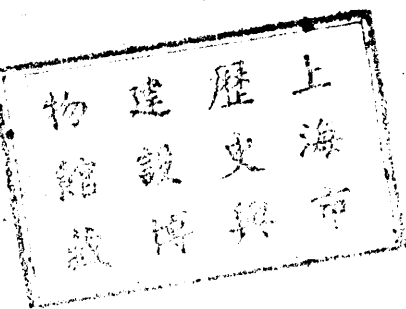 上海市
歷史與
建設博
物館藏